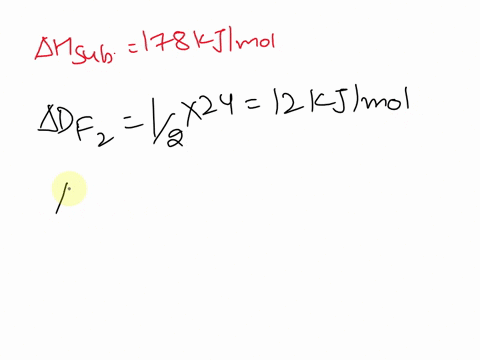 ΔHsub. = 178 KJ/mol
ΔD_F₂ = 1/2 × 24 = 12 KJ/mol